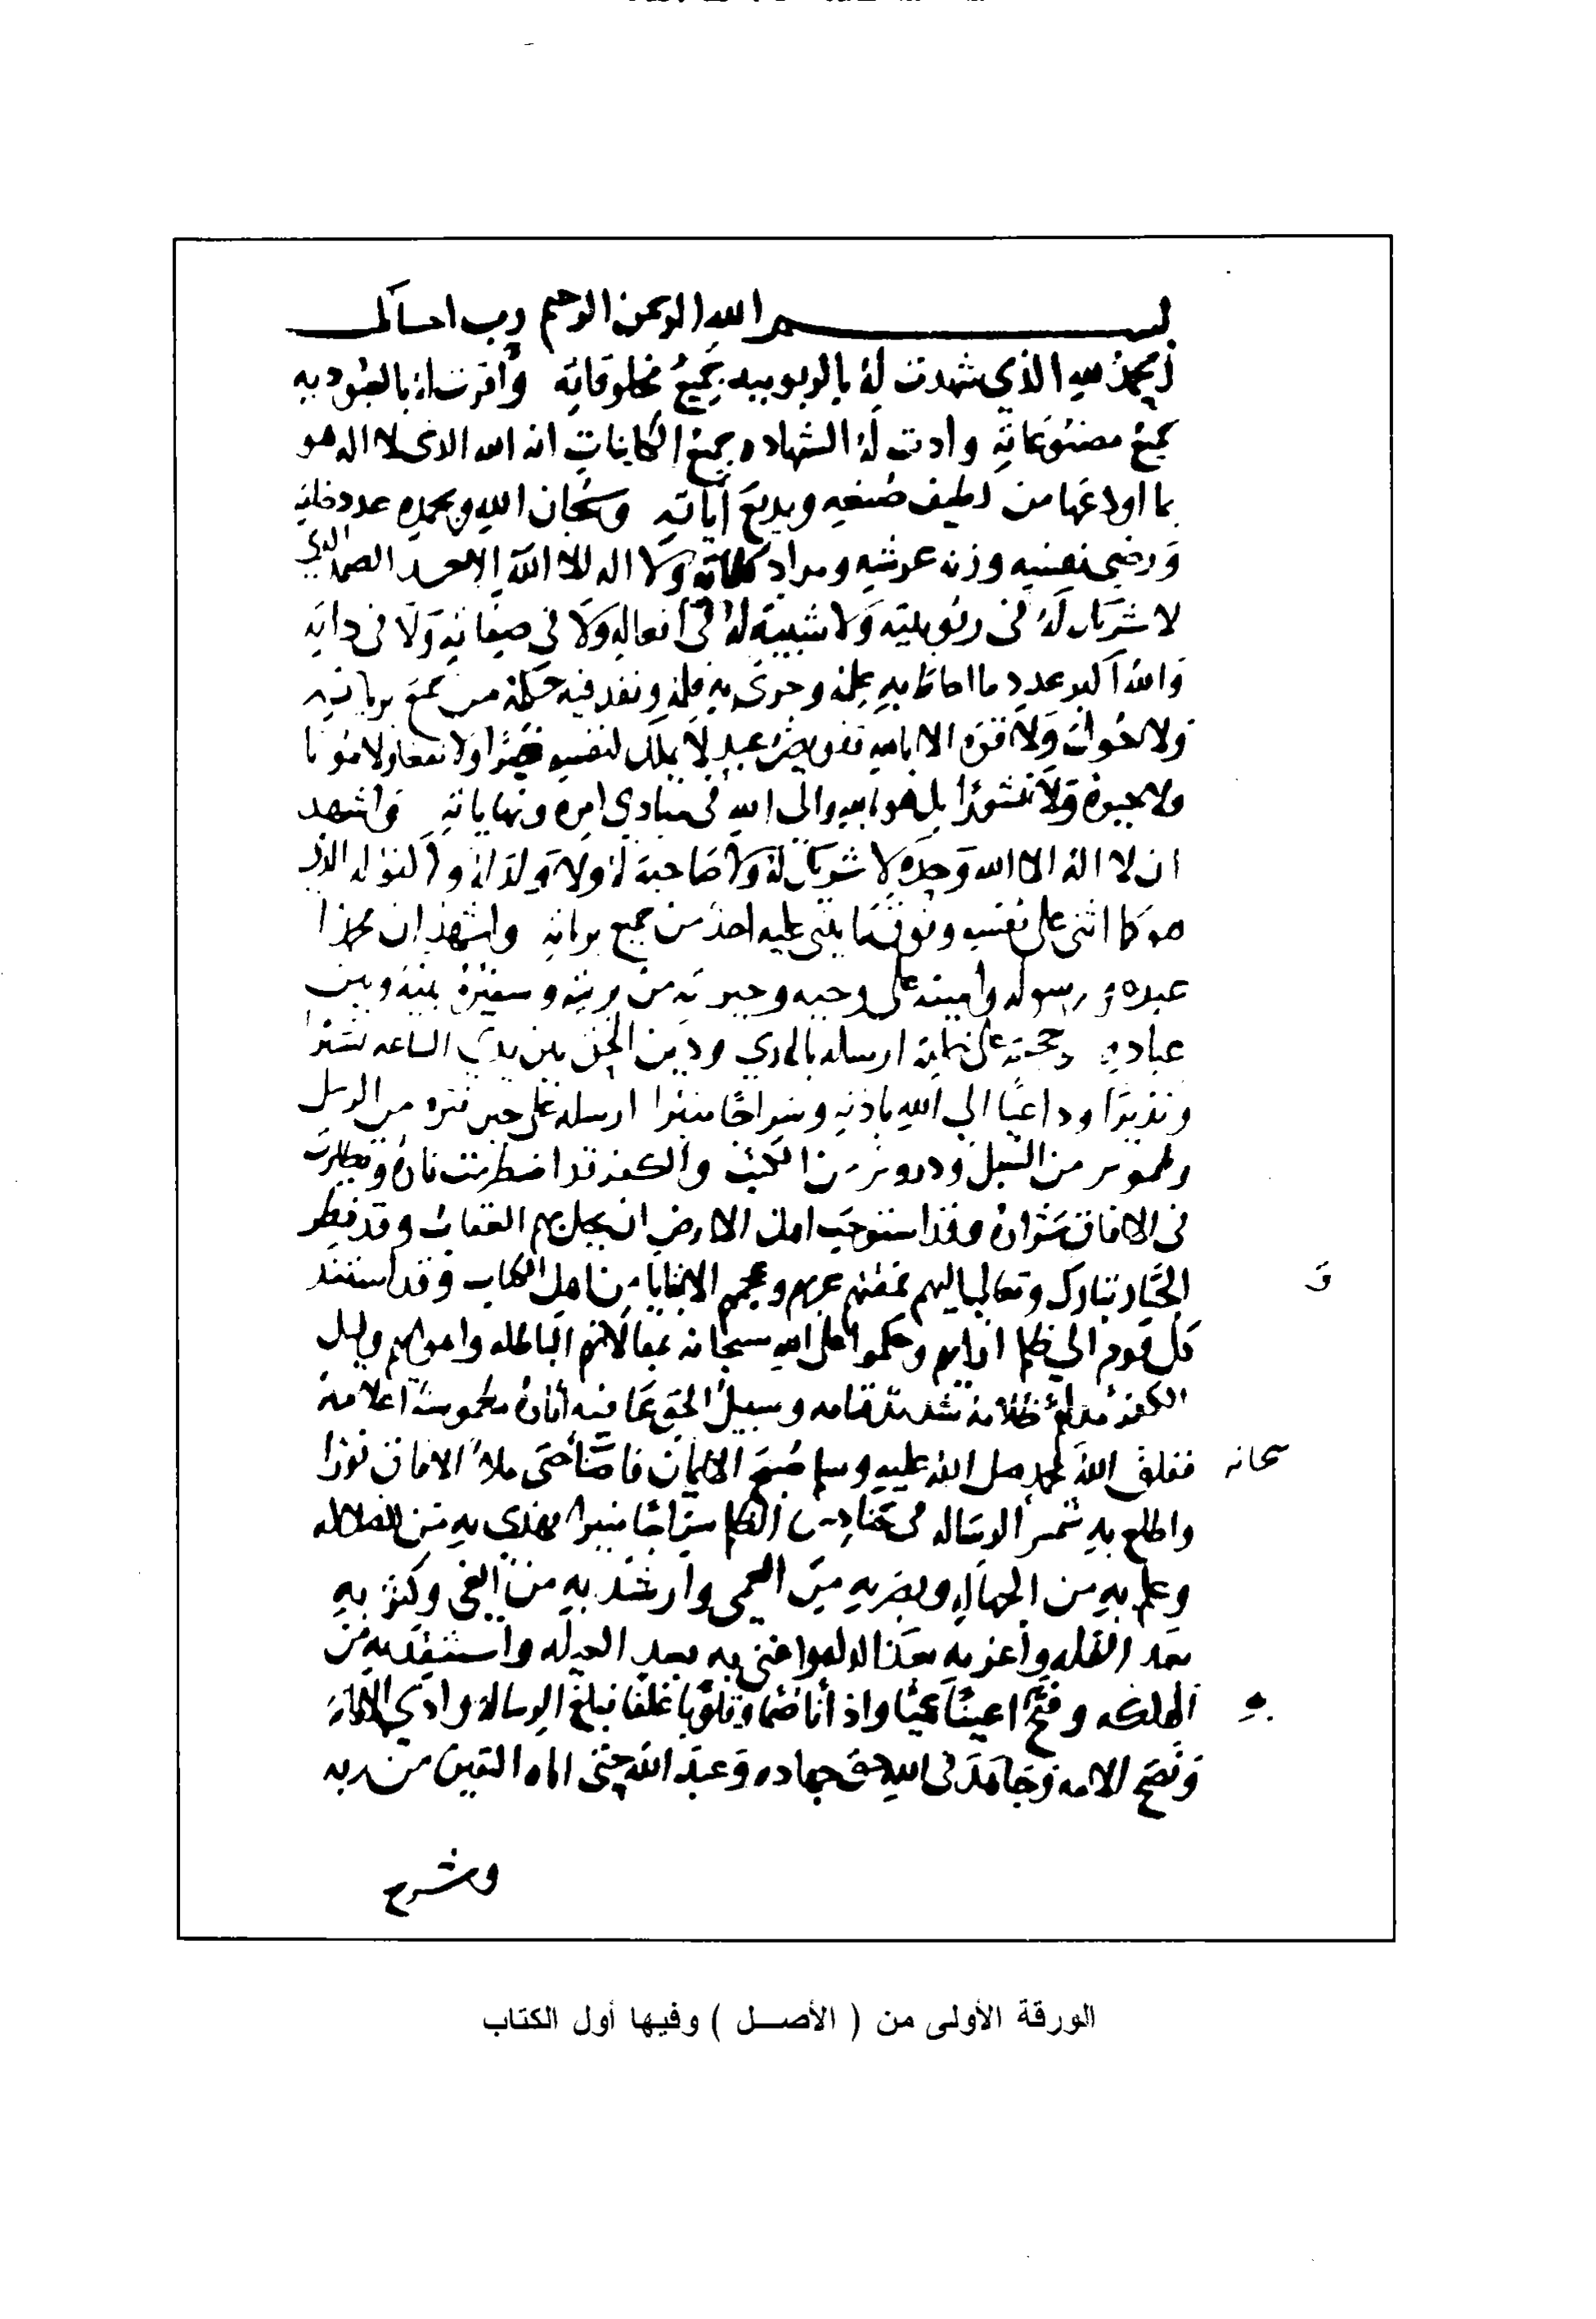 بسم الله الرحمن الرحيم رب
الحمد لله الذي شهدت له بالربوبيه جميع مخلوقاته واقرت له بالعبوديه
جميع مصنوعاته وادت له الشهاده جميع الكاينات انه الله الذي لا اله هو
بما اودعها من لطيف صنعه وبديع آياته وسبحان الله وبحمده عدد خلقه
ورضي نفسه وزنه عرشه ومداد كلماته ولا اله الا الله الاحد الصمد الذي
لا شريك له في ربوبيته ولا شبيه له في افعاله ولا في صفاته ولا في ذاته
والله اكبر عدد ما احاط به علمه وجرى به قلمه ونفذ فيه حكمه من جميع برياته
ولا حول ولا قوه الا بالله تفويض عبد لا يملك لنفسه ضرا ولا نفعا ولا موتا
ولا حيوة ولا نشورا بل هو بالله والى الله في مبادي امره ونهاياته واشهد
ان لا اله الا الله وحده لا شريك له ولا صاحبة له ولا ولد له ولا كفو له الذي
هو كما اثنى على نفسه وفوق ما يثني عليه احد من جميع برياته واشهد ان محمدا
عبده ورسوله وامينه على وحيه وخيرته من بريته وسفيره بينه وبين
عباده وحجته على ارسله بالهدي ودين الحق بين يدي الساعه بشيرا
ونذيرا وداعيا الى الله باذنه وسراجا منيرا ارسله على حين فتره من الرسل
وطموس من السبل ودروس من الكتب والكفر قد اضطرمت ناره وتطايرت
في الافاق شراره وقد استوجب اهل الارض ان يحل بهم العقاب وقد نظر
الجبار تبارك وتعالى اليهم فمقتهم عربهم وعجمهم الا بقايا من اهل الكتاب وقد استند
و
كل قوم الى ظلم ارايهم وحكموا على الله سبحانه بمقالاتهم الباطله واهوايهم وليل
الكفر مدلهم ظلامه شديد قتامه وسبيل الحق عافيه اثاره مطموسة اعلامه
ففلق الله بمحمد صلى الله عليه وسلم صبح الايمان فاضا حتى ملأ الافاق نورا
سبحانه
واطلع به شمس الرساله في حنادس الظلم سراجا منيرا فهدى به من الضلاله
وعلم به من الجهاله وبصر به من العمى وارشد به من الغي وكثر به
بعد القله واعز به بعد الذله واغنى به بعد العيله واستنقذ به من
الهلكه وفتح اعينا عميا واذانا صما وقلوبا غلفا فبلغ الرسالة وادي الامانة
به
ونصح الامه وجاهد في الله حق جهاده وعبد الله حتى اتاه اليقين من ربه
وشرح
الورقة الأولى من ( الأصـــل ) وفيها أول الكتاب